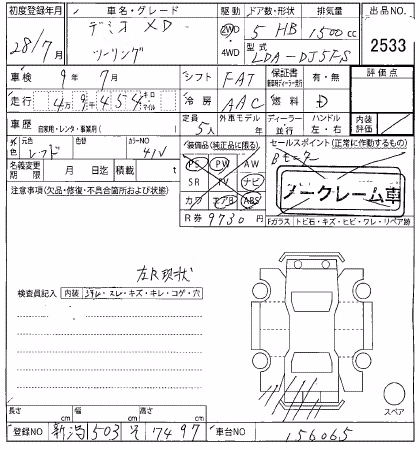 初度登録年月 車名・グレード 駆動 ドア数・形状 排気量 出品NO.
28/7月 デミオ XD 2WD 5 HB 1500cc 2533
ツーリング 4WD 型式 LDA-DJ5FS
車検 9年 7月 シフト FAT 保証書 有・無 評価点
走行 4万9千454 キロ マイル 冷房 AAC 燃料 D
車歴 自家用・レンタ・事業用( ) 定員 5人 外車モデル 年 ディーラー 並行 ハンドル 左・右 内装評価
外色 元色 レッド カラーNO 41V 装備品(純正品に限る) セールスポイント(正常に作動するもの)
PS PW AW
名義変更期限 月 日迄 積載 t SR TV ナビ
注意事項(欠品・修復・不具合箇所および状態) カワ エアB ABS
ノークレーム車
R券 9730円 Fガラス トビ石・キズ・ヒビ・ワレ・リペア跡
左R現状
検査員記入 内装 ヨゴレ・スレ・キズ・キレ・コゲ・穴
スペア
長さ cm 幅 cm 高さ cm
登録NO 新潟 503 そ 7497 車台NO 156065